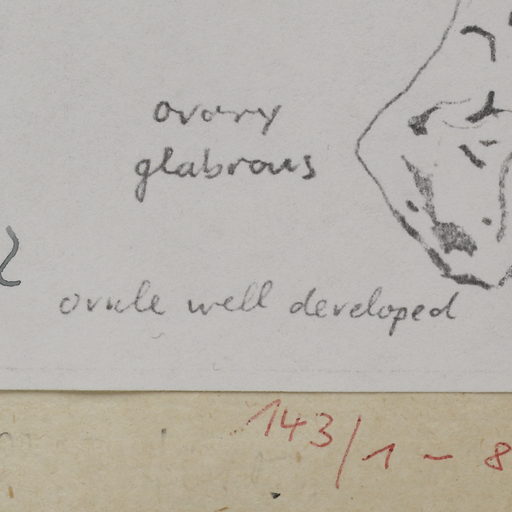 ovary
glabrous
ovule well developed
143/1-8